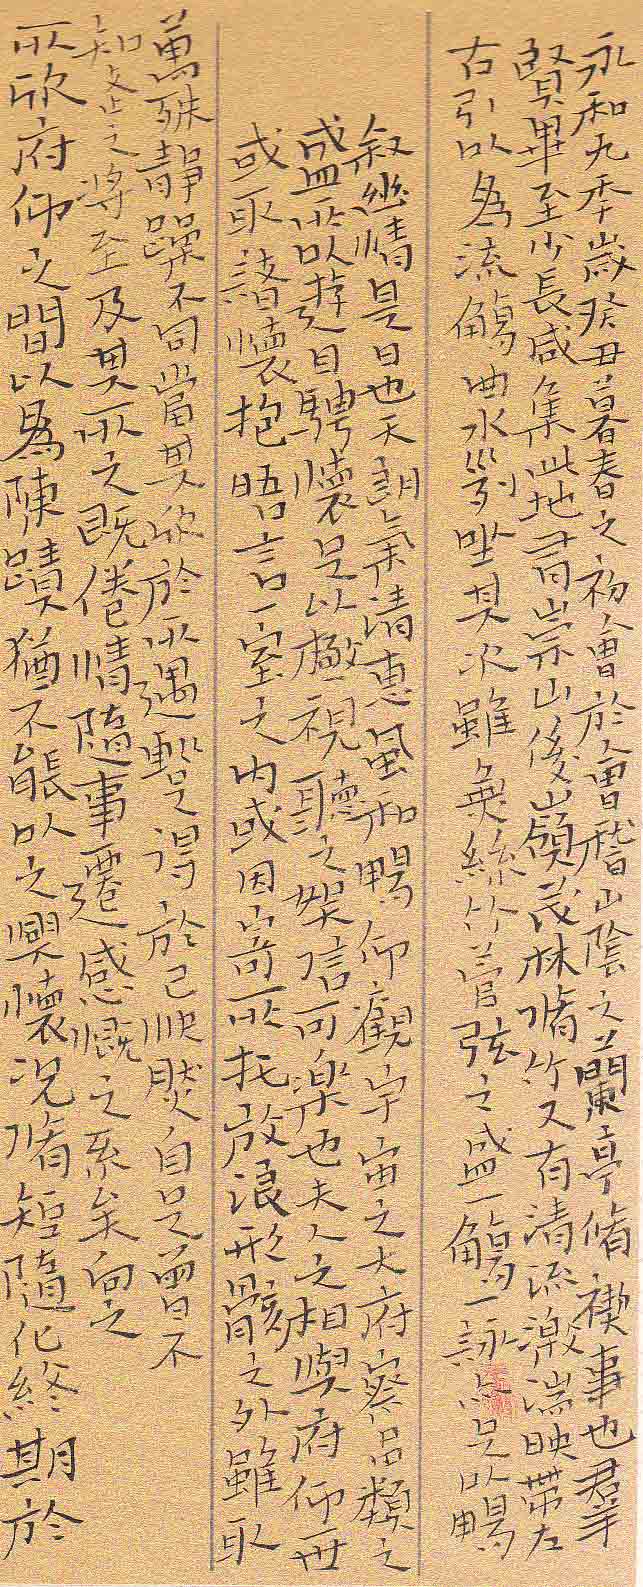 永和九年歲癸丑暮春之初會於會稽山陰之蘭亭脩禊事也群
賢畢至少長咸集此地有崇山後嶺茂林脩竹又有清流激湍映帶左
右引以為流觴曲水列坐其次雖無絲竹管弦之盛一觴一詠亦足以暢
敘幽情是日也天朗氣清惠風和暢仰觀宇宙之大府察品類之
盛所以遊目騁懷足以極視聽之娛信可樂也夫人之相與府仰一世
或取諸懷抱晤言一室之內或因寄所托放浪形骸之外雖取
萬殊靜躁不同當其欣於所遇暫得於己快然自足曾不
知老之將至及其所之既倦情隨事遷感慨之系矣向之
所欣府仰之間以為陳蹟猶不能以之興懷況脩短隨化終期於